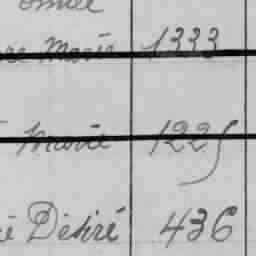 Emile
re Marie 1333
Marie 1225
é Désiré 436